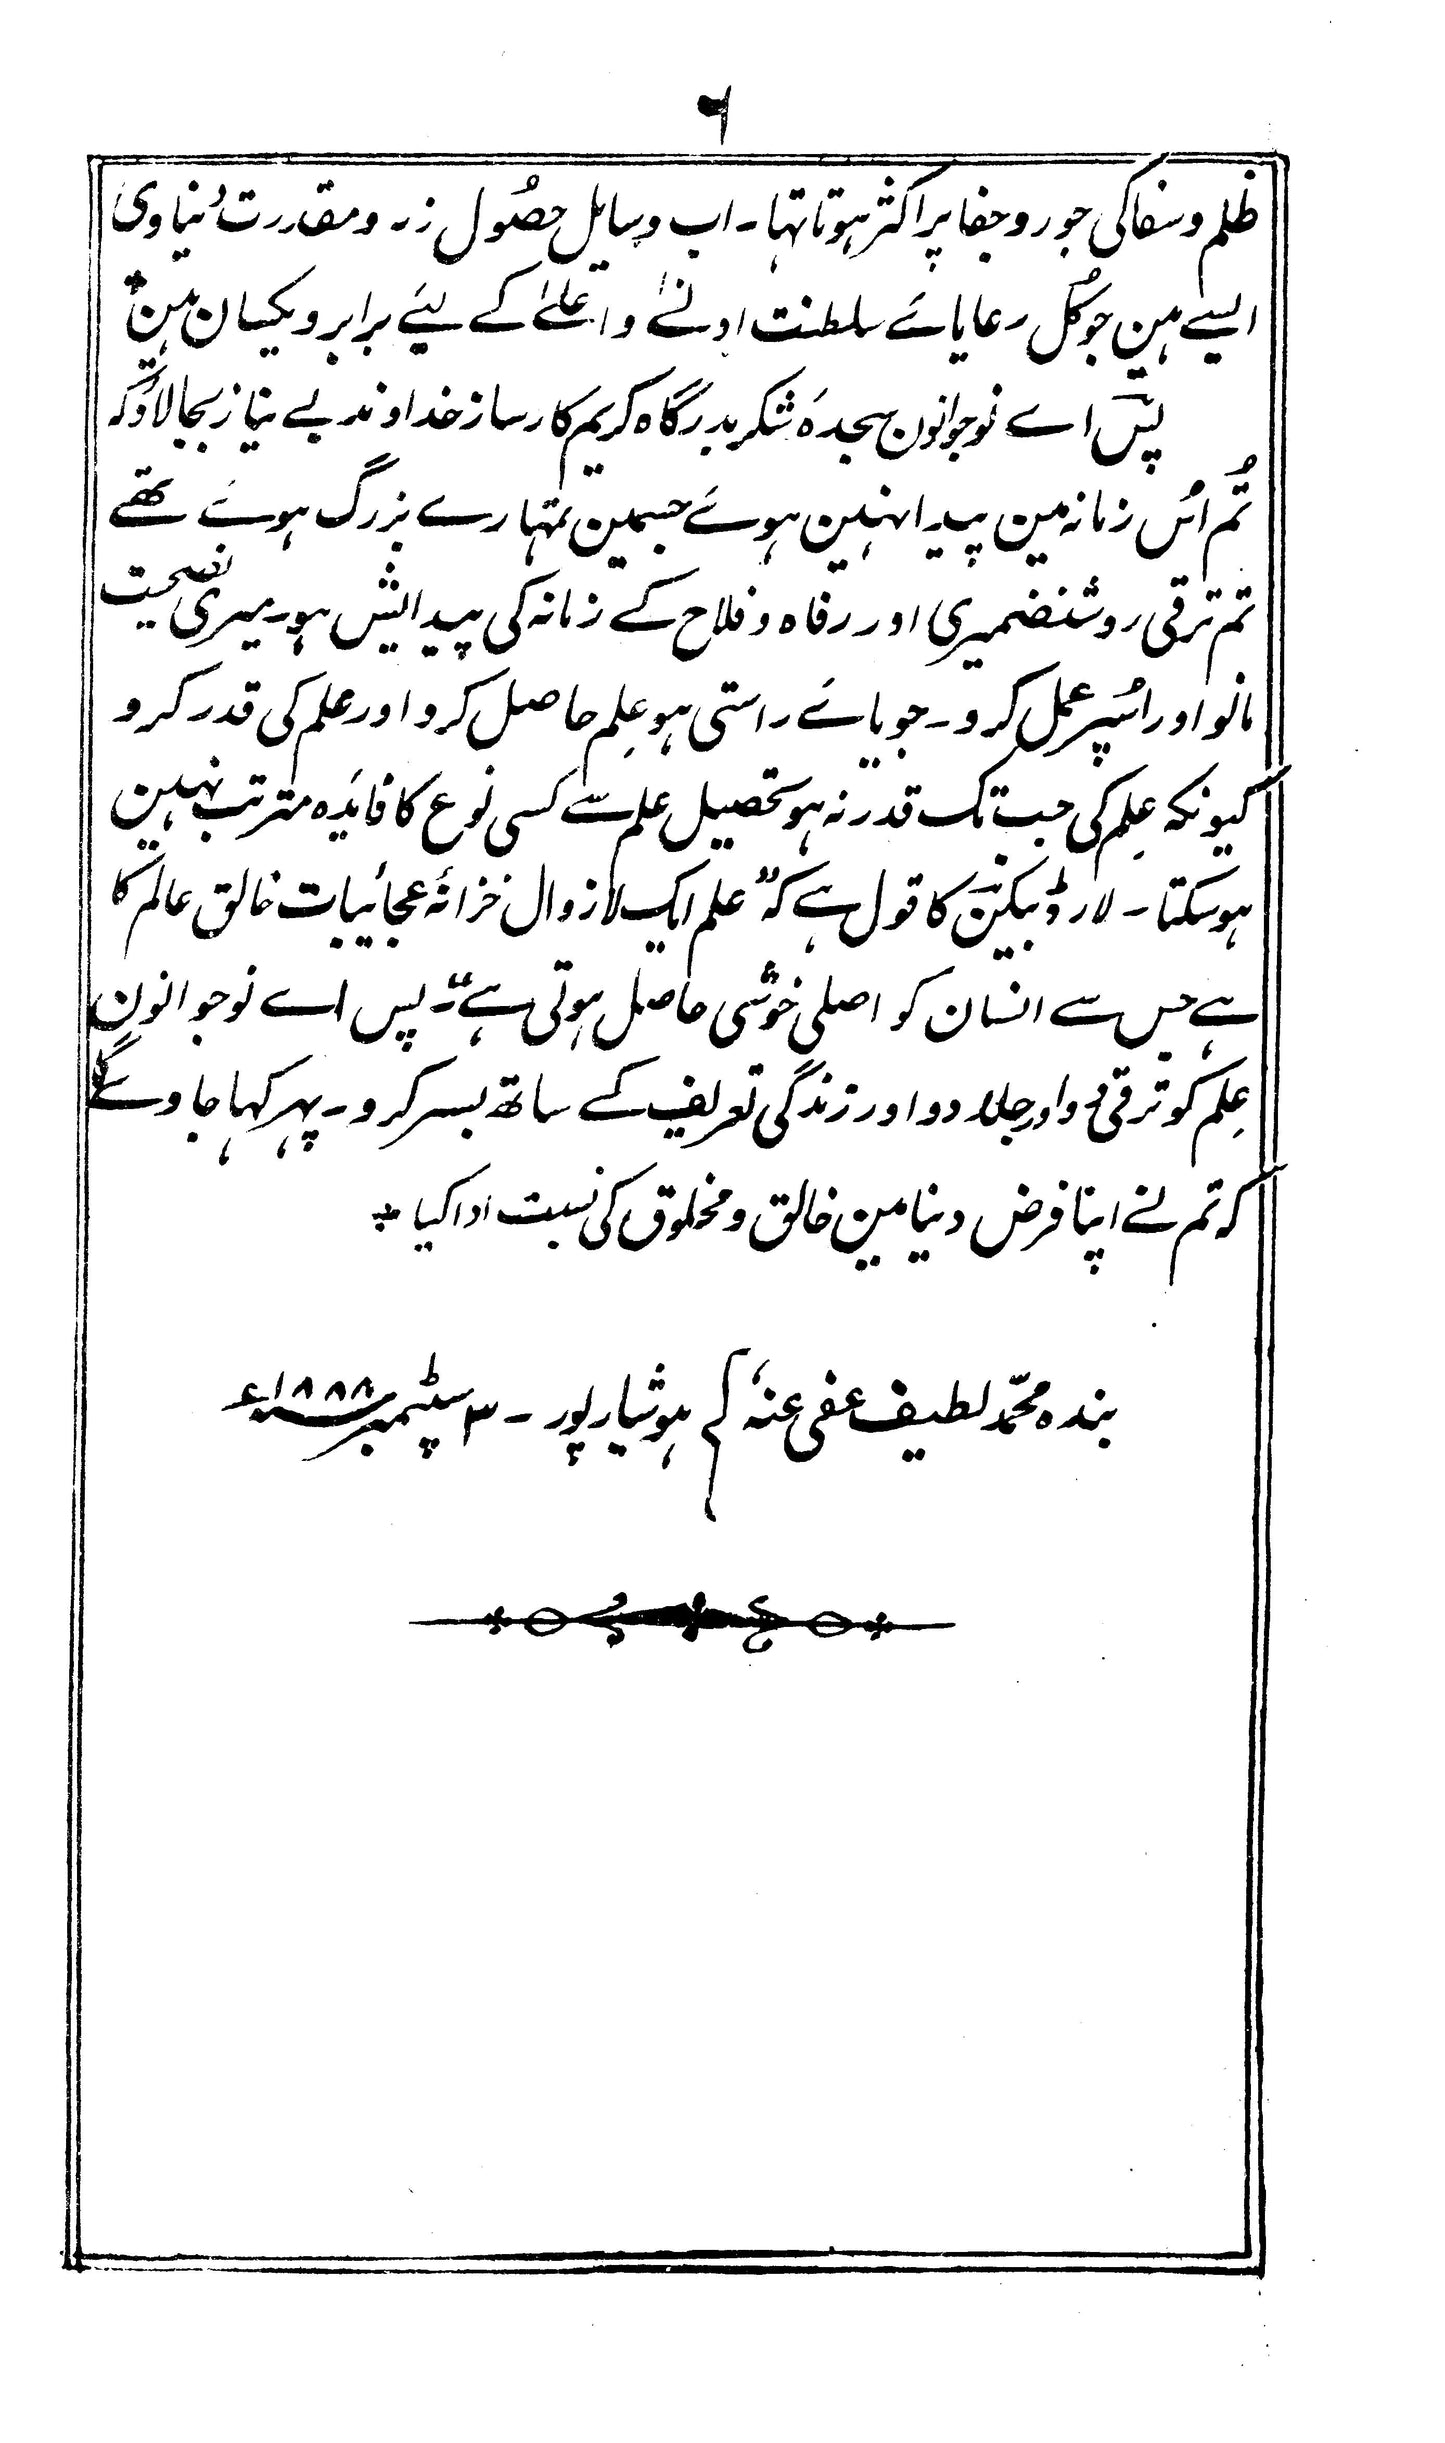 ۶
ظلم و سفاکی جور و جفا پر اکثر ہوتا تہا۔ اب وسایل حصُول زر و مقدرت دُنیاوی
ایسے ہین جو کُل رعایاۓ سلطنت ادنےٰ و اعلےٰ کے لیۓ برابر و یکسان ہین *
پس اے نوجوانون سجدہٴ شکر بدرگاہ کریم کارساز خداوند بے نیاز بجا لاؤ کہ
تُم اُس زمانہ مین پیدا نہین ہوۓ جسمین تمہارے بزرگ ہوۓ تھے
تم ترقی روشنضمیری اور رفاہ و فلاح کے زمانہ کی پیدایش ہو۔ میری نصیحت
مانو اور اُسپر عمل کرو۔ جویاۓ راستی ہو عِلم حاصل کرو اور علم کی قدر کرو
کیونکہ عِلم کی جب تک قدر نہ ہو تحصیل علم سے کسی نوع کا فایٔدہ مترتب نہین
ہو سکتا۔ لارڈ بیکن کا قول ہے کہ ”علم ایک لازوال خزانہٴ عجائیبات خالق عالم کا
ہے جس سے انسان کو اصلی خوشی حاصل ہوتی ہے“۔ پس اے نوجوانون
عِلم کو ترقی دو اور جِلا دو اور زندگی تعریف کے ساتھ بسر کرو۔ پہر کہا جاوے گا
کہ تم نے اپنا فرض دنیا مین خالق و مخلوق کی نسبت ادا کیا *
بندہ محمّد لطیف عفی عنہٗ ہوشیارپور ۔ ۳ سپٹمبر ۱۸۸۸ء